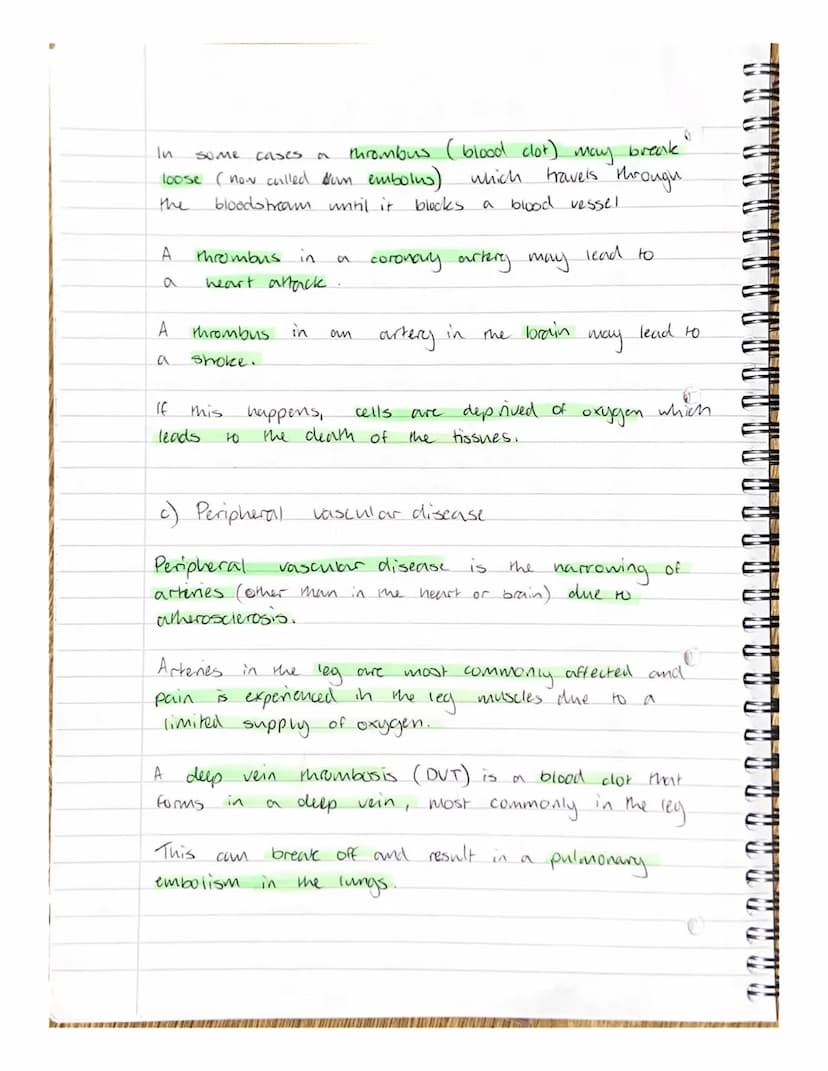 In some cases a thrombus (blood clot) may break
loose (now called an embolus) which travels through
the bloodstream until it blocks a blood vessel
A thrombus in a coronary artery may lead to
a heart attack.
A thrombus in an artery in the brain may lead to
a stroke.
If this happens, cells are deprived of oxygen which
leads to the death of the tissues.
c) Peripheral vascular disease
Peripheral vascular disease is the narrowing of
arteries (other than in the heart or brain) due to
atherosclerosis.
Arteries in the leg are most commonly affected and
pain is experienced in the leg muscles due to a
limited supply of oxygen.
A deep vein thrombosis (DVT) is a blood clot that
forms in a deep vein, most commonly in the leg
This can break off and result in a pulmonary
embolism in the lungs.